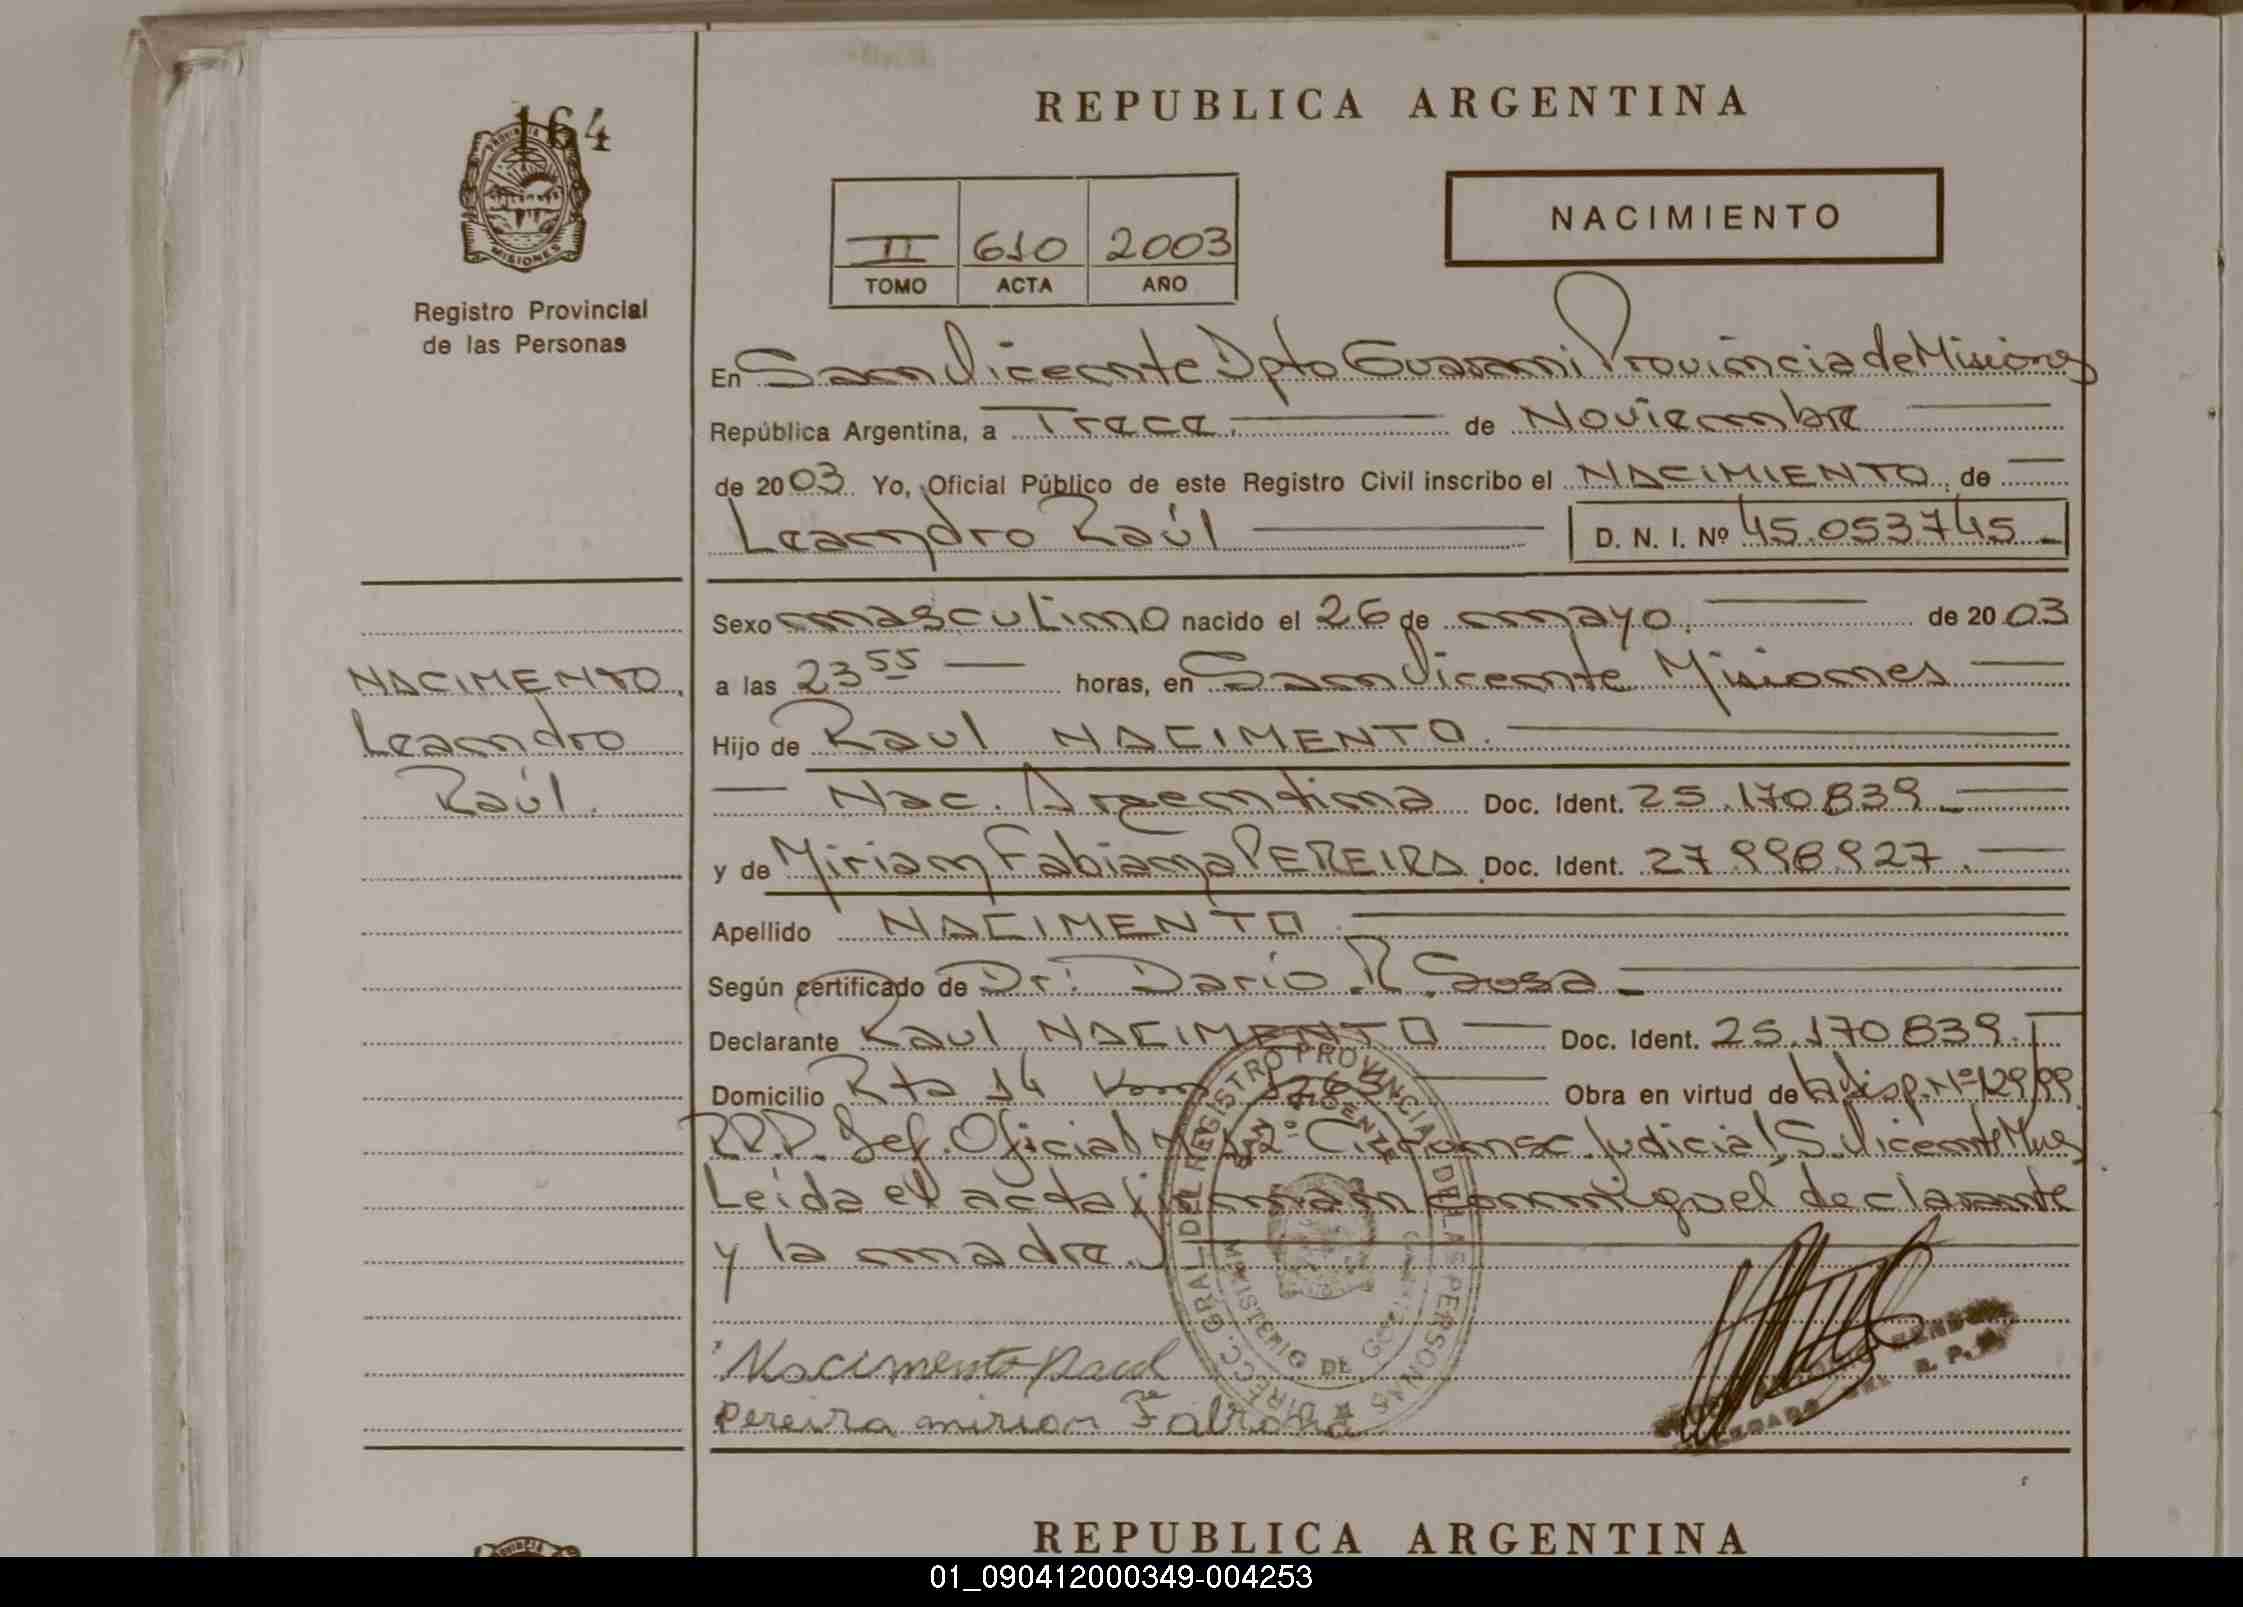 164
PROVINCIA
MISIONES
Registro Provincial
de las Personas
REPUBLICA ARGENTINA
II 610 2003
TOMO ACTA AÑO
NACIMIENTO
En San Vicente Dpto Guarani Provincia de Misiones
República Argentina, a Trece de Noviembre
de 2003 Yo, Oficial Público de este Registro Civil inscribo el NACIMIENTO de
Leandro Raúl D. N. I. Nº 45.053745
Sexo masculino nacido el 26 de mayo de 2003
a las 23 55 horas, en San Vicente Misiones
Hijo de Raul NACIMENTO
Nac. Argentina Doc. Ident. 25.170839
y de Miriam Fabiana PEREIRA Doc. Ident. 27998927
Apellido NACIMENTO
Según certificado de Dr. Dario R. Sosa
Declarante Raul NACIMENTO Doc. Ident. 25.170839
Domicilio Rta 14 Km 1263 Obra en virtud de la disp. Nº 129/99
R.P.P. Def. Oficial Nº 2º Circonsc. Judicial S. Vicente Mnes
Leída el acta firman conmigo el declarante
y la madre.
NACIMENTO
Leandro
Raúl.
Nacimento Raul
Pereira mirian Fabiana
DIRECC. GRAL. DEL REGISTRO PROVINCIAL DE LAS PERSONAS
SAN VICENTE
MINISTERIO DE GOBIERNO
REPUBLICA ARGENTINA
PROVINCIA
01_090412000349-004253